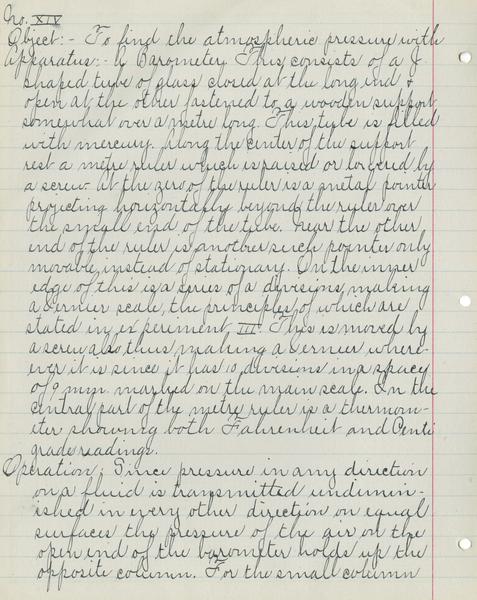 No. XIV
Object:- To find the atmospheric pressure with
Apparatus:- A Barometer. This, consists of a J
shaped tube of glass closed at the long end &
open at the other fastened to a wooden support
somewhat over a metre long. This tube is filled
with mercury. Along the center of the support
rest a metre ruler which is raised or lowered by
a screw at the zero of the ruler is a metal pointer
projecting horizontally beyond the ruler over
the small end of the tube. Near the other
end of the ruler is another such pointer only
movable, instead of stationary. On the inner
edge of this is a series of a divisions, making
a vernier scale, the principles of which are
stated in experiment III. This is moved by
a screw also thus making a vernier where-
ever it is since it has 10 divisions in a space
of 9 mm. marked on the main scale. In the
central part of the metre ruler is a thermom-
iter showing both Fahrenheit and Centi
grade readings.
Operation; Since pressure in any direction
on a fluid is transmitted undimin-
ished in every other direction on equal
surfaces the pressure of the air on the
open end of the barometer holds up the
opposite column. For the small column